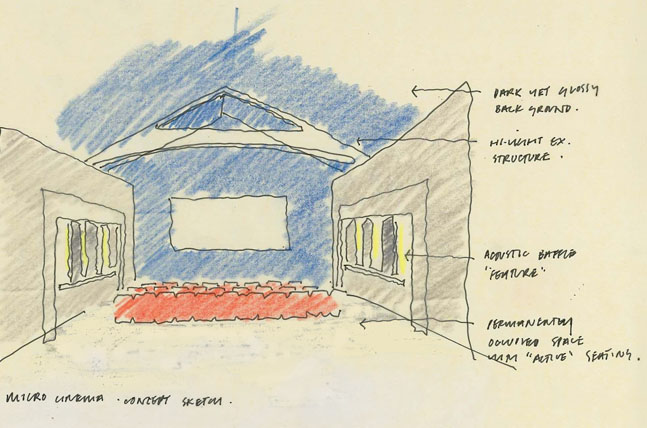 DARK YET GLOSSY
BACKGROUND.
HI-LIGHT EX.
STRUCTURE.
ACOUSTIC BAFFLE
"FEATURE"
PERMANENTLY
OCCUPIED SPACE
WITH "ACTIVE" SEATING.
MICRO CINEMA . CONCEPT SKETCH.